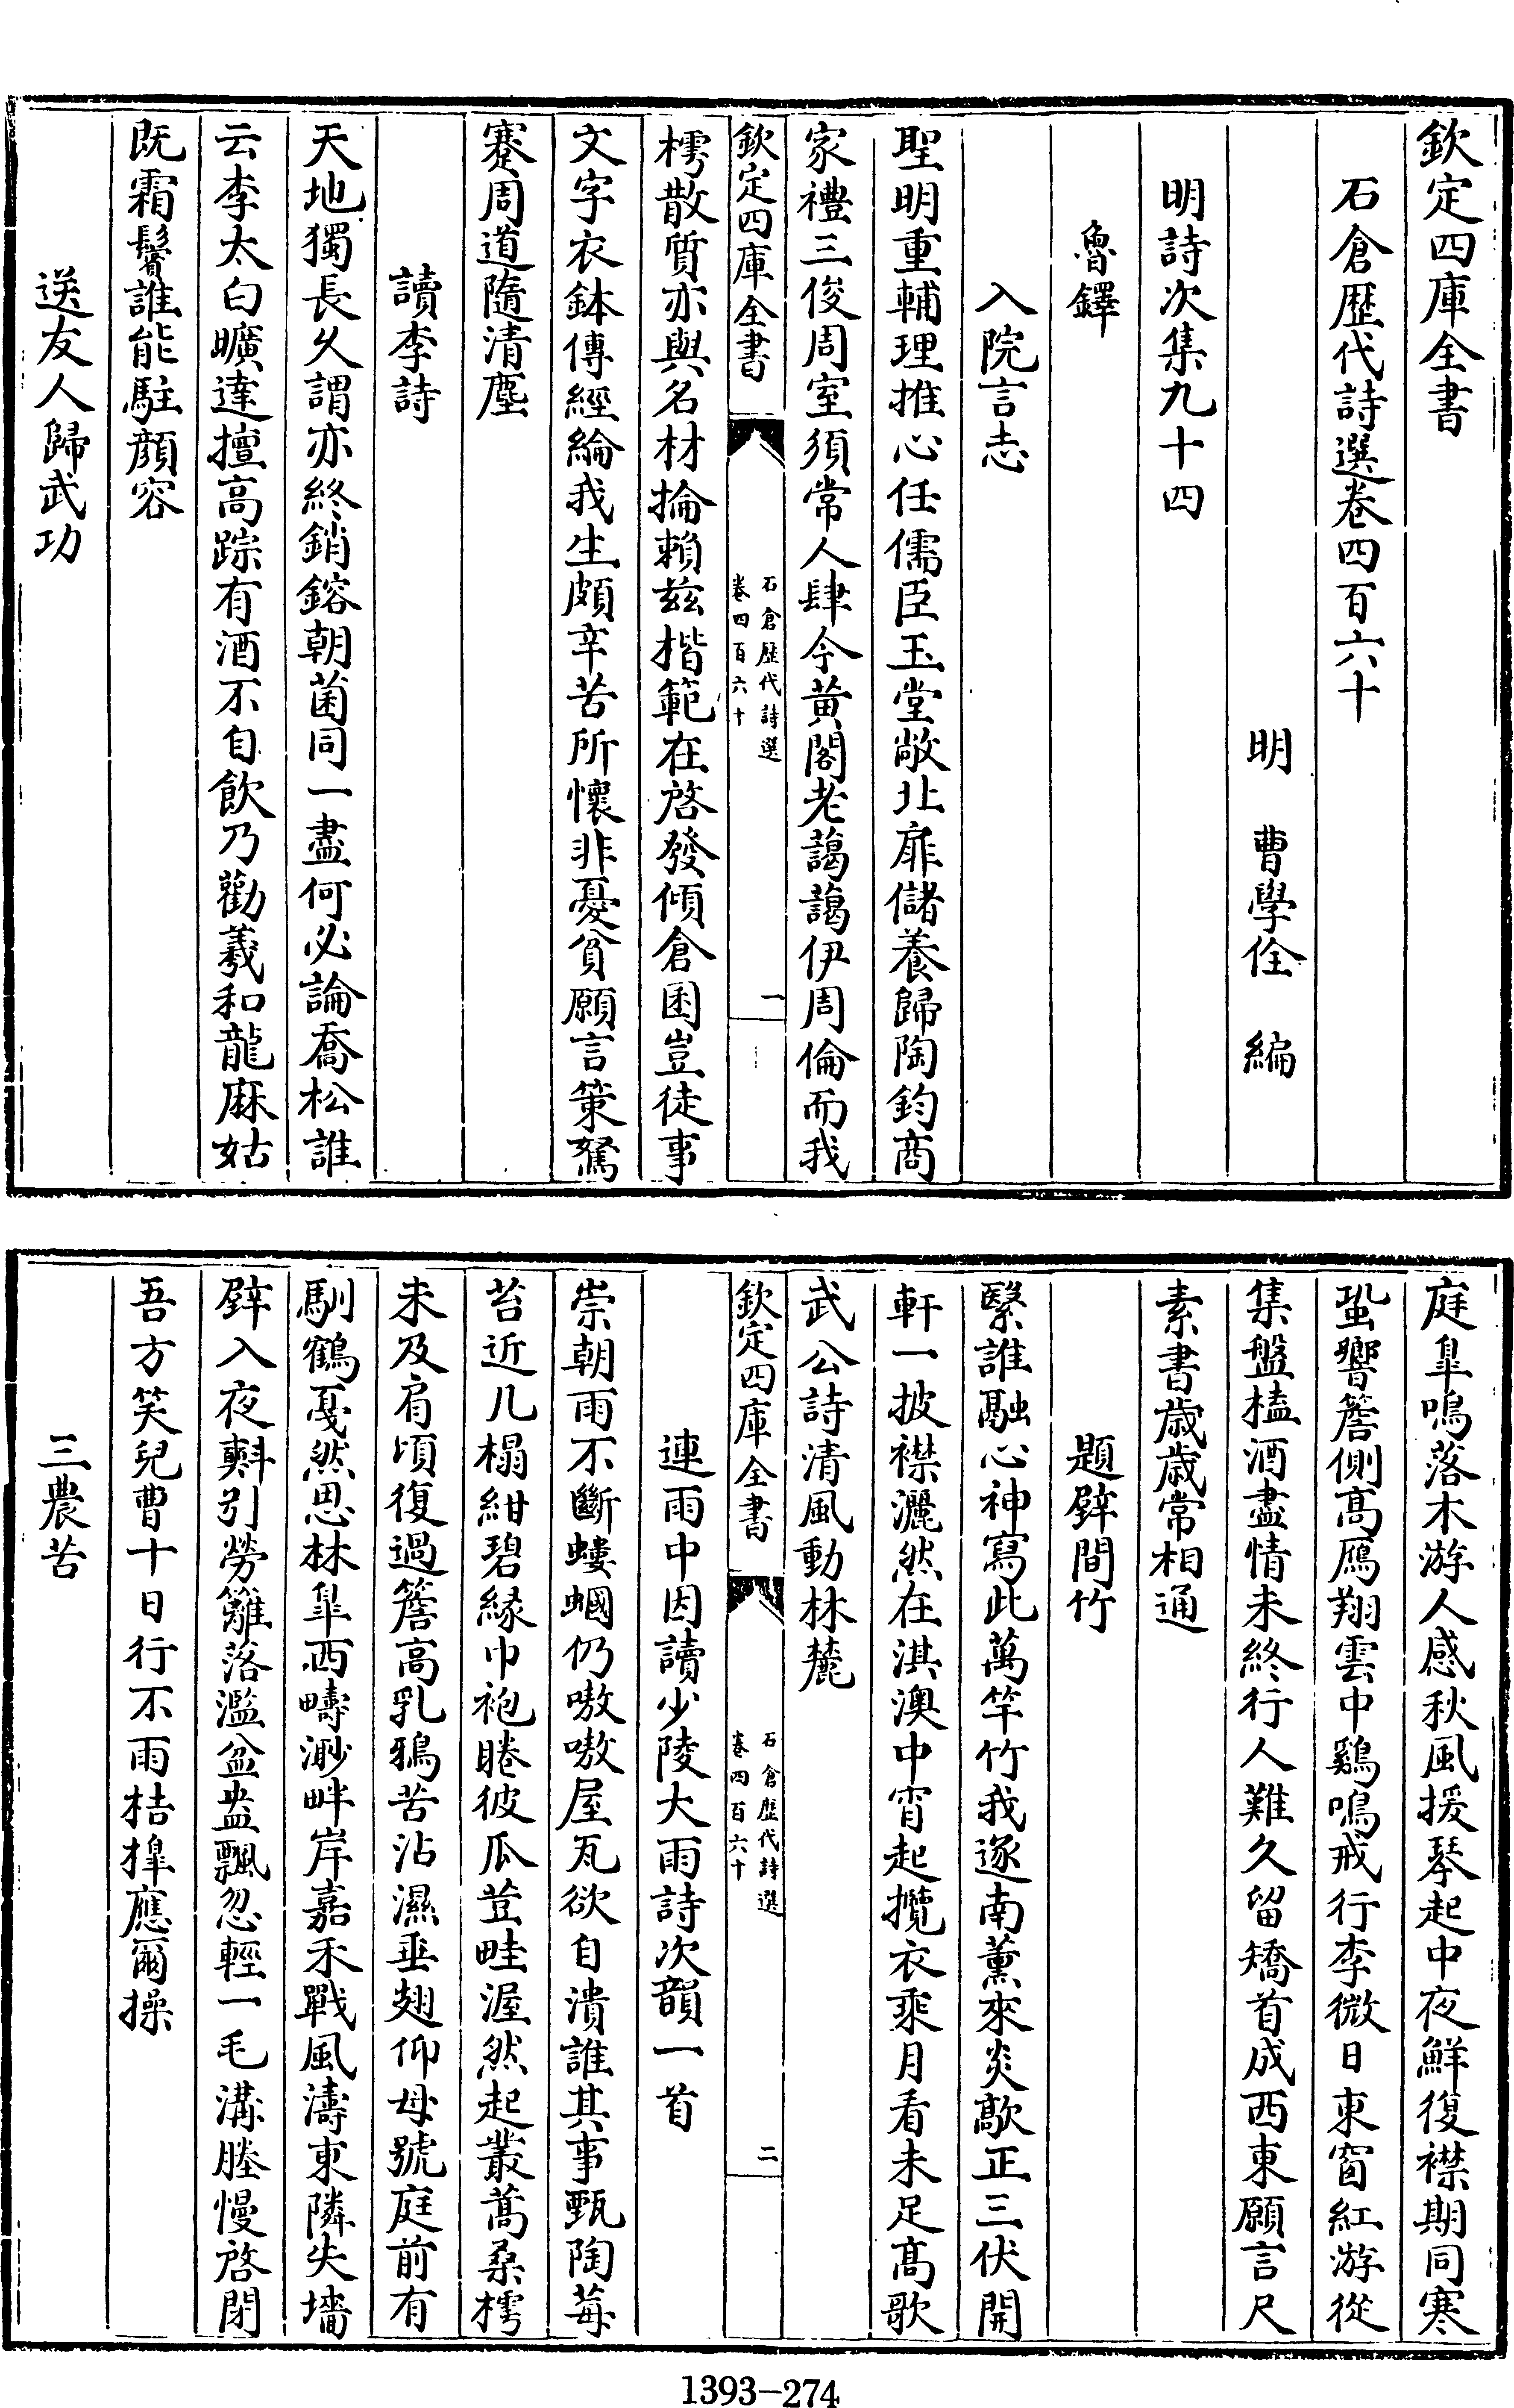 欽定四庫全書
石倉歴代詩選卷四百六十
明　曹學佺　編
明詩次集九十四
魯鐸
入院言志
聖明重輔理推心任儒臣玉堂敞北扉儲養歸陶鈞商
家禮三俊周室須常人肆今黄閣老藹藹伊周倫而我
欽定四庫全書
石倉歷代詩選
卷四百六十
一
樗散質亦與名材掄賴兹楷範在啓發傾倉囷豈徒事
文字衣鉢傳經綸我生頗辛苦所懷非憂貧願言策駑
蹇周道隨清塵
讀李詩
天地獨長久謂亦終銷鎔朝菌同一盡何必論喬松誰
云李太白曠達擅高踪有酒不自飲乃勸羲和龍麻姑
既霜鬢誰能駐顔容
送友人歸武功
庭臯鳴落木游人感秋風援琴起中夜鮮復襟期同寒
蛩響簷側髙鴈翔雲中鷄鳴戒行李微日東窗紅游從
集盤榼酒盡情未終行人難久留矯首成西東願言尺
素書歳歳常相通
題壁間竹
繄誰融心神寫此萬竿竹我逐南薰來炎歊正三伏開
軒一披襟灑然在淇澳中宵起攬衣乘月看未足髙歌
武公詩清風動林麓
欽定四庫全書
石倉歷代詩選
卷四百六十
二
連雨中因讀少陵大雨詩次韻一首
崇朝雨不斷螻蟈仍嗷嗷屋瓦欲自潰誰其事甄陶莓
苔近几榻紺碧緣巾袍睠彼瓜荳畦渥然起叢蒿桑樗
未及肩頃復過簷高乳鴉苦沾濕垂翅仰母號庭前有
馴鶴戛然思林臯西疇渺畔岸嘉禾戰風濤東隣失墻
壁入夜㪺引勞籬落濫盆盎飄忽輕一毛溝塍慢啓閉
吾方笑兒曹十日行不雨桔槹應爾操
三農苦
1393-274